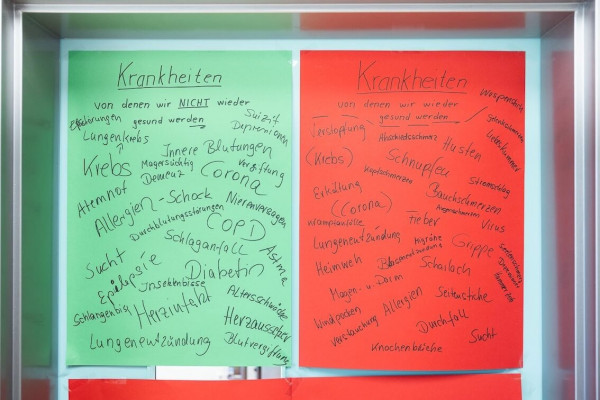 Krankheiten
von denen wir NICHT wieder
gesund werden
Suizit
Depressionen
Lungenkrebs
Innere Blutungen
Krebs
Magersüchtig
Demenz
Vergiftung
Corona
Atemnot
Allergien-Schock
Nierenversagen
Durchblutungsstörungen
COPD
Schlaganfall
Astma
Sucht
Epilepsie
Diabetis
Insektenbisse
Altersschwäche
Schlangenbiss
Herzinfakt
Herzausfall
Lungenentzündung
Blutvergiftung
Krankheiten
von denen wir wieder
gesund werden
Wespenstiche
Verstopfung
Abschiedsschmerz
Liebeskummer
Husten
(Krebs)
Schnupfen
Kopfschmerzen
Stromschlag
Erkältung
Bauchschmerzen
(Corona)
Fieber
Virus
Lungenentzündung
Migräne
Grippe
Heimweh
Blasenentzündung
Scharlach
Magen- u. Darm
Seitenstiche
Allergien
Windpocken
Verstauchung
Durchfall
Sucht
Knochenbrüche